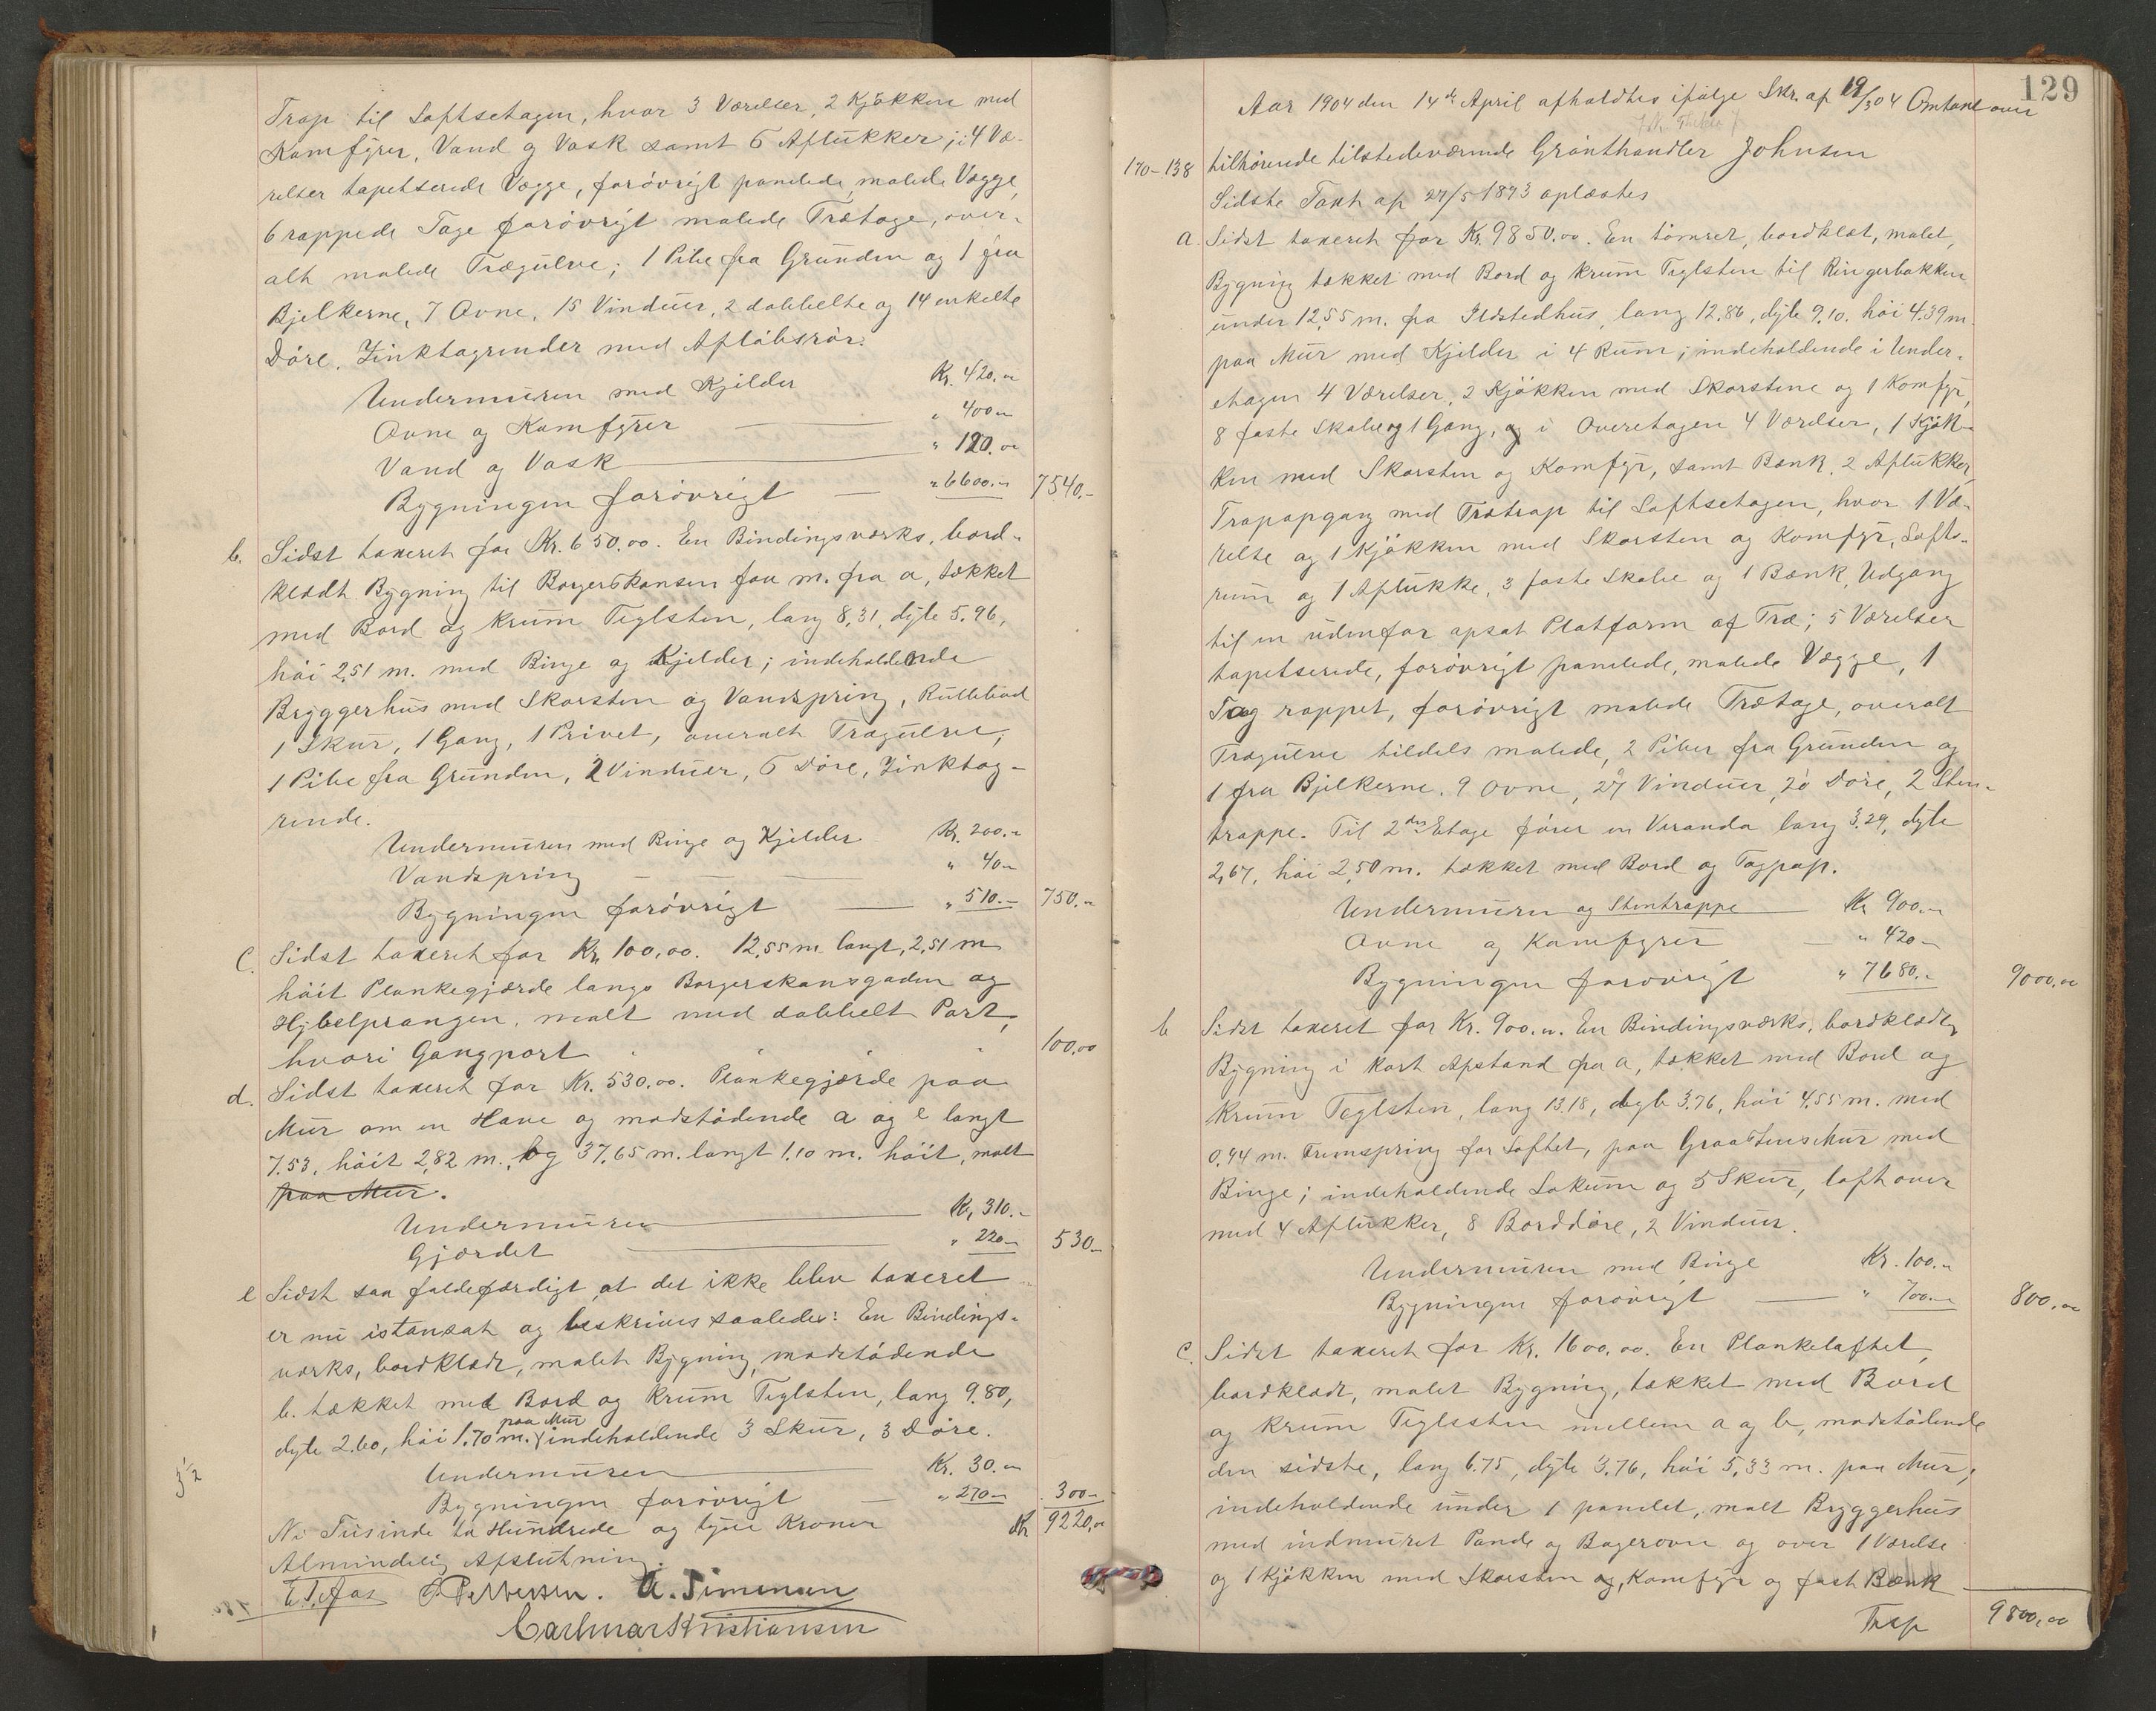 Trap til Loftsetagen, hvor 3 Værelser, 2 Kjøkken med
Komfyrer, Vand og Vask samt 6 Aflukker; i 4 Væ-
relser tapetserede Vægge, forøvrigt panelede, malede Vægge,
6 rappede Tage forøvrigt malede Trætage, over-
alt malede Trægulve; 1 Pibe fra Grunden og 1 fra
Bjelkerne, 7 Ovne, 15 Vinduer, 2 dobbelte og 14 enkelte
Døre, Zinktagrender med Afløbsrør.
Undermuren med Kjelder Kr. 420.00
Ovne og Komfyrer " 400 "
Vand og Vask " 120.00
Bygningen forøvrigt " 6600.- 7540.-
b. Sidst taxeret for Kr. 650.00. En Bindingsværks, bord-
klædt Bygning til Borgerskansen faa m. fra a, tækket
med Bord og krum Teglsten, lang 8,31, dyb 5.96,
høi 2,51 m. med Binge og Kjelder; indeholdende
Bryggerhus med Skorsten og Vandspring, Rullebod
1 Skur, 1 Gang, 1 Privet, overalt Trægulve,
1 Pibe fra Grunden, 2 Vinduer, 6 Døre, Zinktag-
rende.
Undermuren med Binge og Kjelder Kr. 200.-
Vandspring " 40 "
Bygningen forøvrigt " 510.- 750.-
c. Sidst taxeret for Kr. 100,00. 12,55 m. langt, 2,51 m
høit Plankegjærde langs Borgerskansgaden og
malt med dobbelt Port,
hvori Gangport " " " 100,00
d. Sidst taxeret for Kr. 530.00. Plankegjærde paa
Mur om en Have og modstødende a og e langt
7.53, høit 2,82 m., og 37,65 m. langt 1.10 m. høit, malt
paa Mur.
Undermuren Kr. 310.-
Gjærdet " 220 - 530 -
e Sidst saa faldefærdigt at det ikke blev taxeret
er nu istandsat og beskrives saaledes: En Bindings-
værks, bordklædt, malet Bygning, modstødende
b. tækket med Bord og krum Teglsten, lang 9.80,
paa Mur
dyb 2.60, høi 1.70 m.; indeholdende 3 Skur, 3 Døre.
Undermuren Kr. 30.-
Bygningen forøvrigt " 270 - 300 -
Ni Tusinde to Hundrede og tyve Kroner Kr 9220,00
Almindelig Afslutning.
S. Pettersen. A. Simensen
Carlmar Kristiansen
129
Aar 1904 den 14de April afholdtes ifølge Skr. af 19/3 04 Omtaxt over
170-138 tilhørende tilstedeværende Grønthandler Johnsen
Sidste Taxt af 27/5 1873 oplæstes
a. Sidst taxeret for Kr. 9850.00. En tømret, bordklæt, malet,
Bygning tækket med Bord og krum Teglsten til Ringerbakken
under 12,55 m. fra Ildstedhus, lang 12,86, dyb 9.10. høi 4.39 m.
paa Mur med Kjelder i 4 Rum; indeholdende i Under-
etagen 4 Værelser, 2 Kjøkken med Skorstene og 1 Komfyr,
8 faste Skabe og 1 Gang, og i Overetagen 4 Værelser, 1 Kjøk-
ken med Skorsten og Komfyr, samt Bænk, 2 Aflukker,
Trapopgang med Trætrap til Loftsetagen, hvor 1 Væ-
relse og 1 Kjøkken med Skorsten og Komfyr, Lofts-
rum og 1 Aflukke, 3 faste Skabe og 1 Bænk, Udgang
til en udenfor opsat Platform af Træ; 5 Værelser
tapetserede, forøvrigt panelede, malede Vægge, 1
Tag rappet, forøvrigt malede Trætage, overalt
Trægulve tildels malede, 2 Piber fra Grunden og
1 fra Bjelkerne. 9 Ovne, Vinduer, 20 Døre, 2 Sten-
trappe. Til 2den Etage fører en Veranda lang 3.29, dyb
2,67, høi 2,50 m. tækket med Bord og Tagpap.
Undermuren og Stentrappe Kr 900.-
Ovne og Komfyrer " 420 -
Bygningen forøvrigt " 7680.- 9000,00
b Sidst taxeret for Kr. 900.00. En Bindingsværks, bordklædt,
Bygning i kort Afstand fra a, tækket med Bord og
Krum Teglsten, lang 13.18, dyb 3.76, høi 4,55 m. med
0,94 m. Fremspring for Loftet, paa Graastens Mur med
Binge; indeholdende Lokum og 5 Skur, loft over
med 4 Aflukker, 8 Borddøre, 2 Vinduer.
Undermuren med Binge Kr. 100.-
Bygningen forøvrigt " 700.- 800.00
c. Sidst taxeret for Kr. 1600.00. En Plankelaftet,
bordklædt, malet Bygning, tækket med Bord
og krum Teglsten mellem a og b, modstødende
den sidste, lang 6.75, dyb 3.76, høi 5,33 m. paa Mur;
indeholdende under 1 panelet, malt Bryggerhus
med indmuret Pande og Bagerovn og over 1 Værelse
og 1 Kjøkken med Skorsten og, Komfyr og fast Bænk
Trap 9800,00